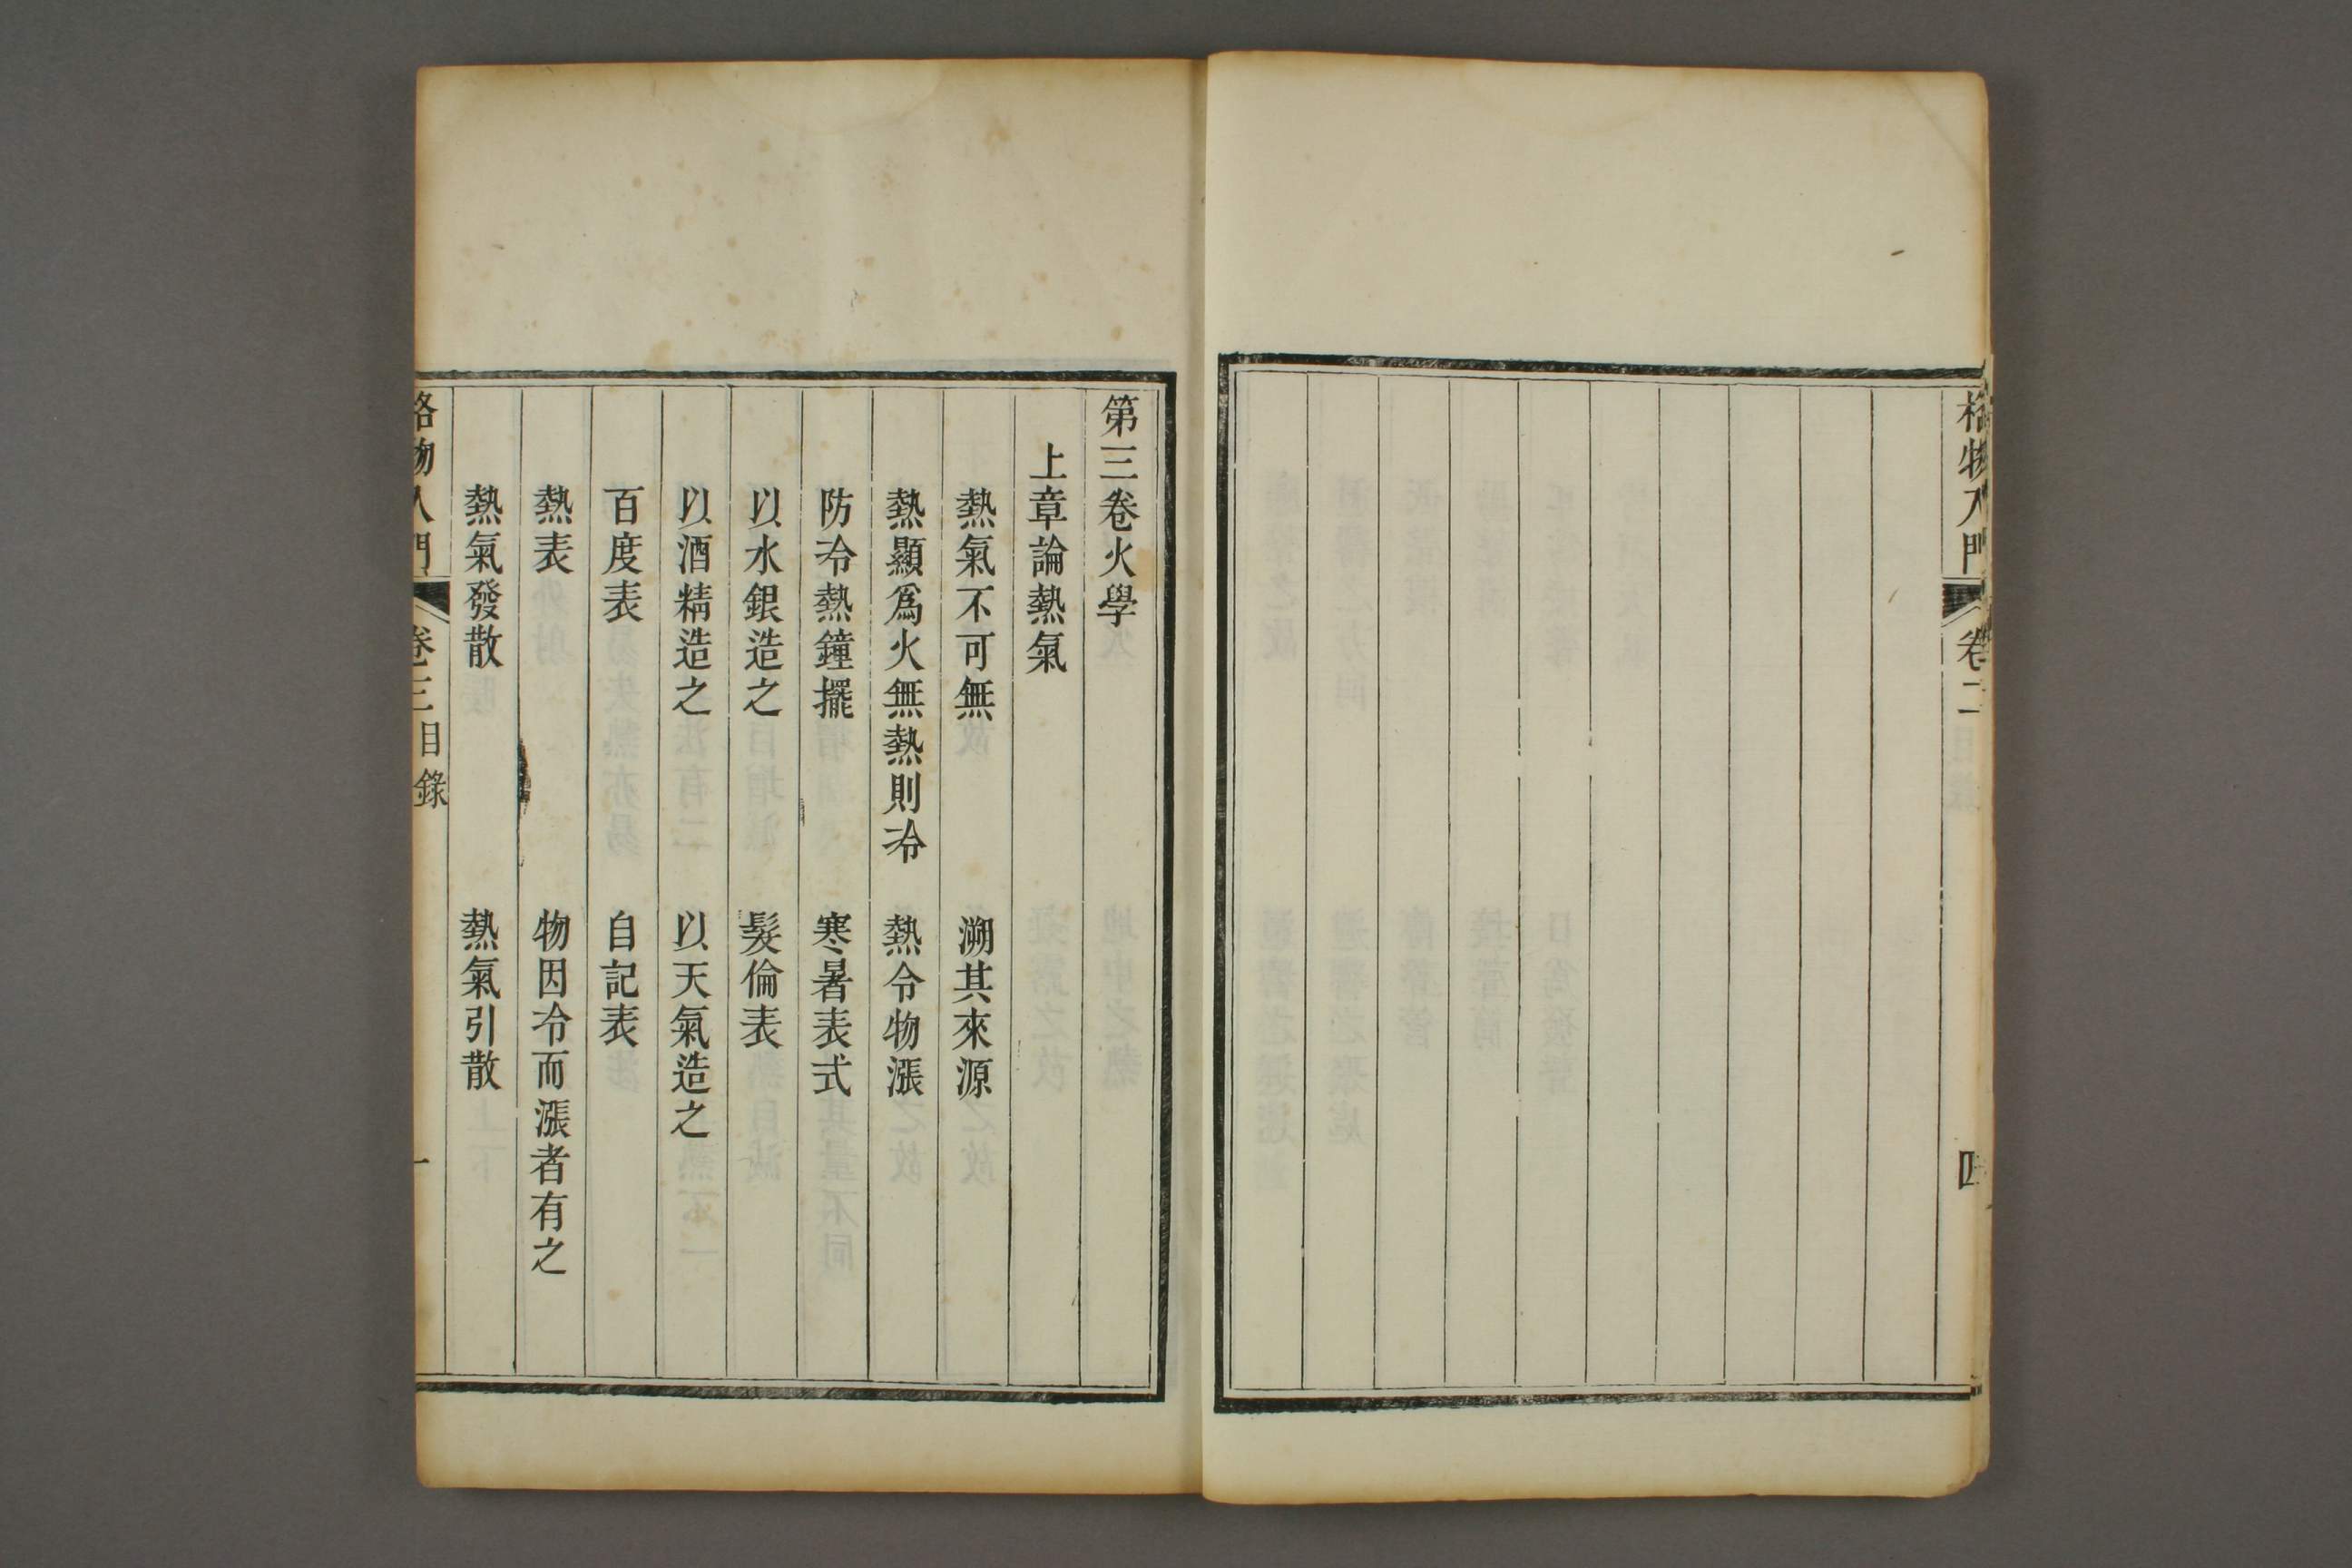 格物入門 卷二 目錄 四
第三卷火學
上章論熱氣
熱氣不可無 溯其來源
熱顯爲火無熱則冷 熱令物漲
防冷熱鐘擺 寒暑表式
以水銀造之 髮倫表
以酒精造之 以天氣造之
百度表 自記表
熱表 物因冷而漲者有之
熱氣發散 熱氣引散
格物入門 卷三目錄 一